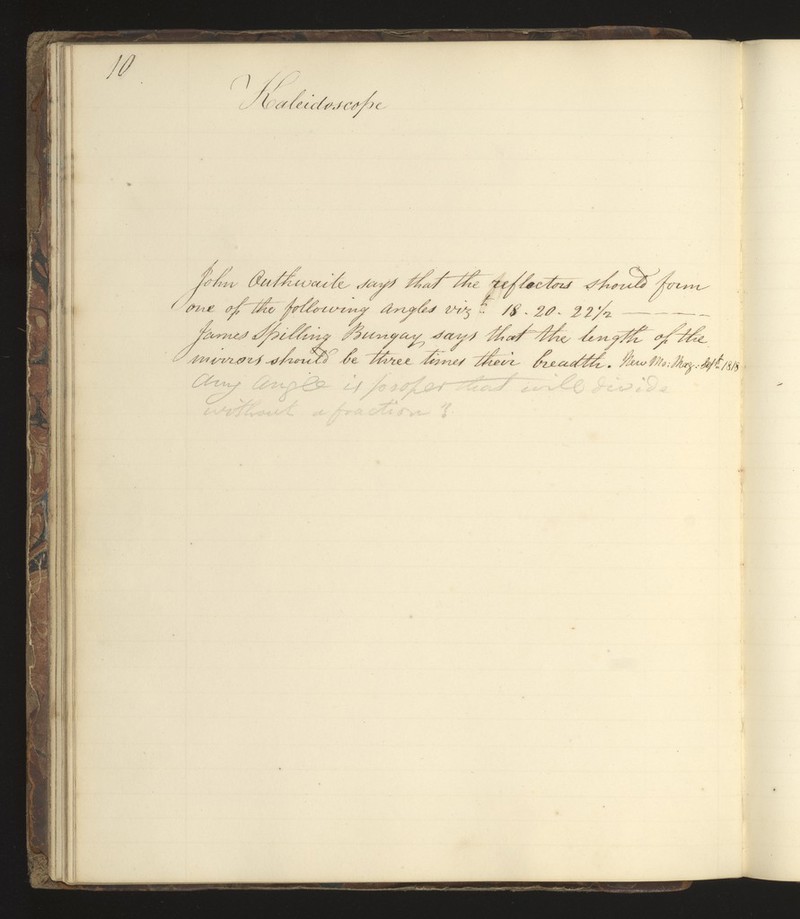 10
Kaleidoscope
John Outhwaite says that the reflectors should form
one of the following angles vizt 18 - 20 - 22 1/2 — — — —
James Spilling Bungay says that the length of the
mirrors should be three times their breadth. New Mo: Mag: Sept. 1818
any angle is proper that will divide
without a fraction